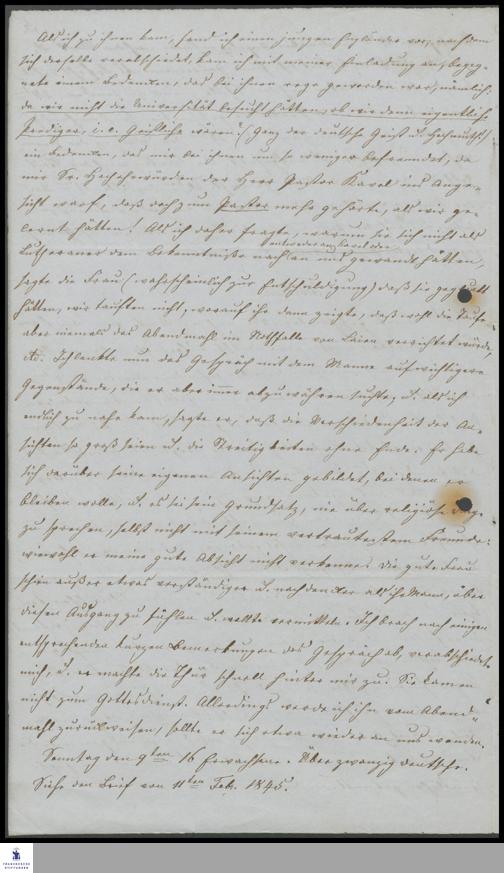 Als ich zu ihnen kam, fand ich einen jungen Engländer vor; nachdem
sich derselbe verabschiedet, kam ich mit meiner Einladung an, begeg-
nete einem Bedenken, das bei ihnen rege geworden war, nämlich:
da wir nicht die Universität besucht hätten, ob wir denn eigentliche
Prediger, i. e. Geistliche wären? (Ganz der deutsche Geist u. Hochmuth!)
ein Bedenken, das mir bei ihnen um so weniger befremdet, da
mir Sr. Hochehrwürden der Herr Pastor Kavel ins Ange-
sicht warf, daß doch zum Pastor mehr gehörte, als wir ge-
lernt hätten! Als ich daher fragte, warum sie sich nicht als
Lutheraner dem Bekenntnisse nach an uns gewandt hätten,
entweder an Kavel oder
sagte die Frau (wahrscheinlich zur Entschuldigung) daß sie
hätten, wir tauften nicht, worauf ihr dann zeigte, daß wohl die Taufe
aber niemals das Abendmahl im Nothfalle von Laien verrichtet würde
etc. Ich lenkte nun das Gespräch mit dem Manne auf wichtigere
Gegenstände, die er aber immer abzuwehren suchte, u. als ich
endlich zu nahe kam, sagte er, daß die Verschiedenheit der An-
sichten so groß seien u. die Streitigkeiten ohne Ende. Er habe
sich darüber seine eigenen Ansichten gebildet, bei denen er
bleiben wolle, u. es sei sein Grundsatz, nie über religiöse Dinge
zu sprechen, selbst nicht mit seinem vertrautestem Freunde:
wiewohl er meine gute Absicht nicht verkenne. Die gute Frau
schien außer etwas verständiger u. nachdenkender als ihr Mann, über
diesen Ausgang zu fühlen u. wollte vermitteln. Ich brach nach einigen
entsprechenden kurzen Bemerkungen das Gespräch ab, verabschiedete
mich, u. er machte die Thür schnell hinter mir zu. Sie kamen
nicht zum Gottesdienst. Allerdings werde ich ihn vom Abend-
mahl zurückweisen, sollte er sich etwa wieder an uns wenden.
Sonntag den 9ten 16 Erwachsene. Über zwanzig Deutsche.
Siehe den Brief vom 11ten Feb. 1845.
FRANCKESCHE
STIFTUNGEN